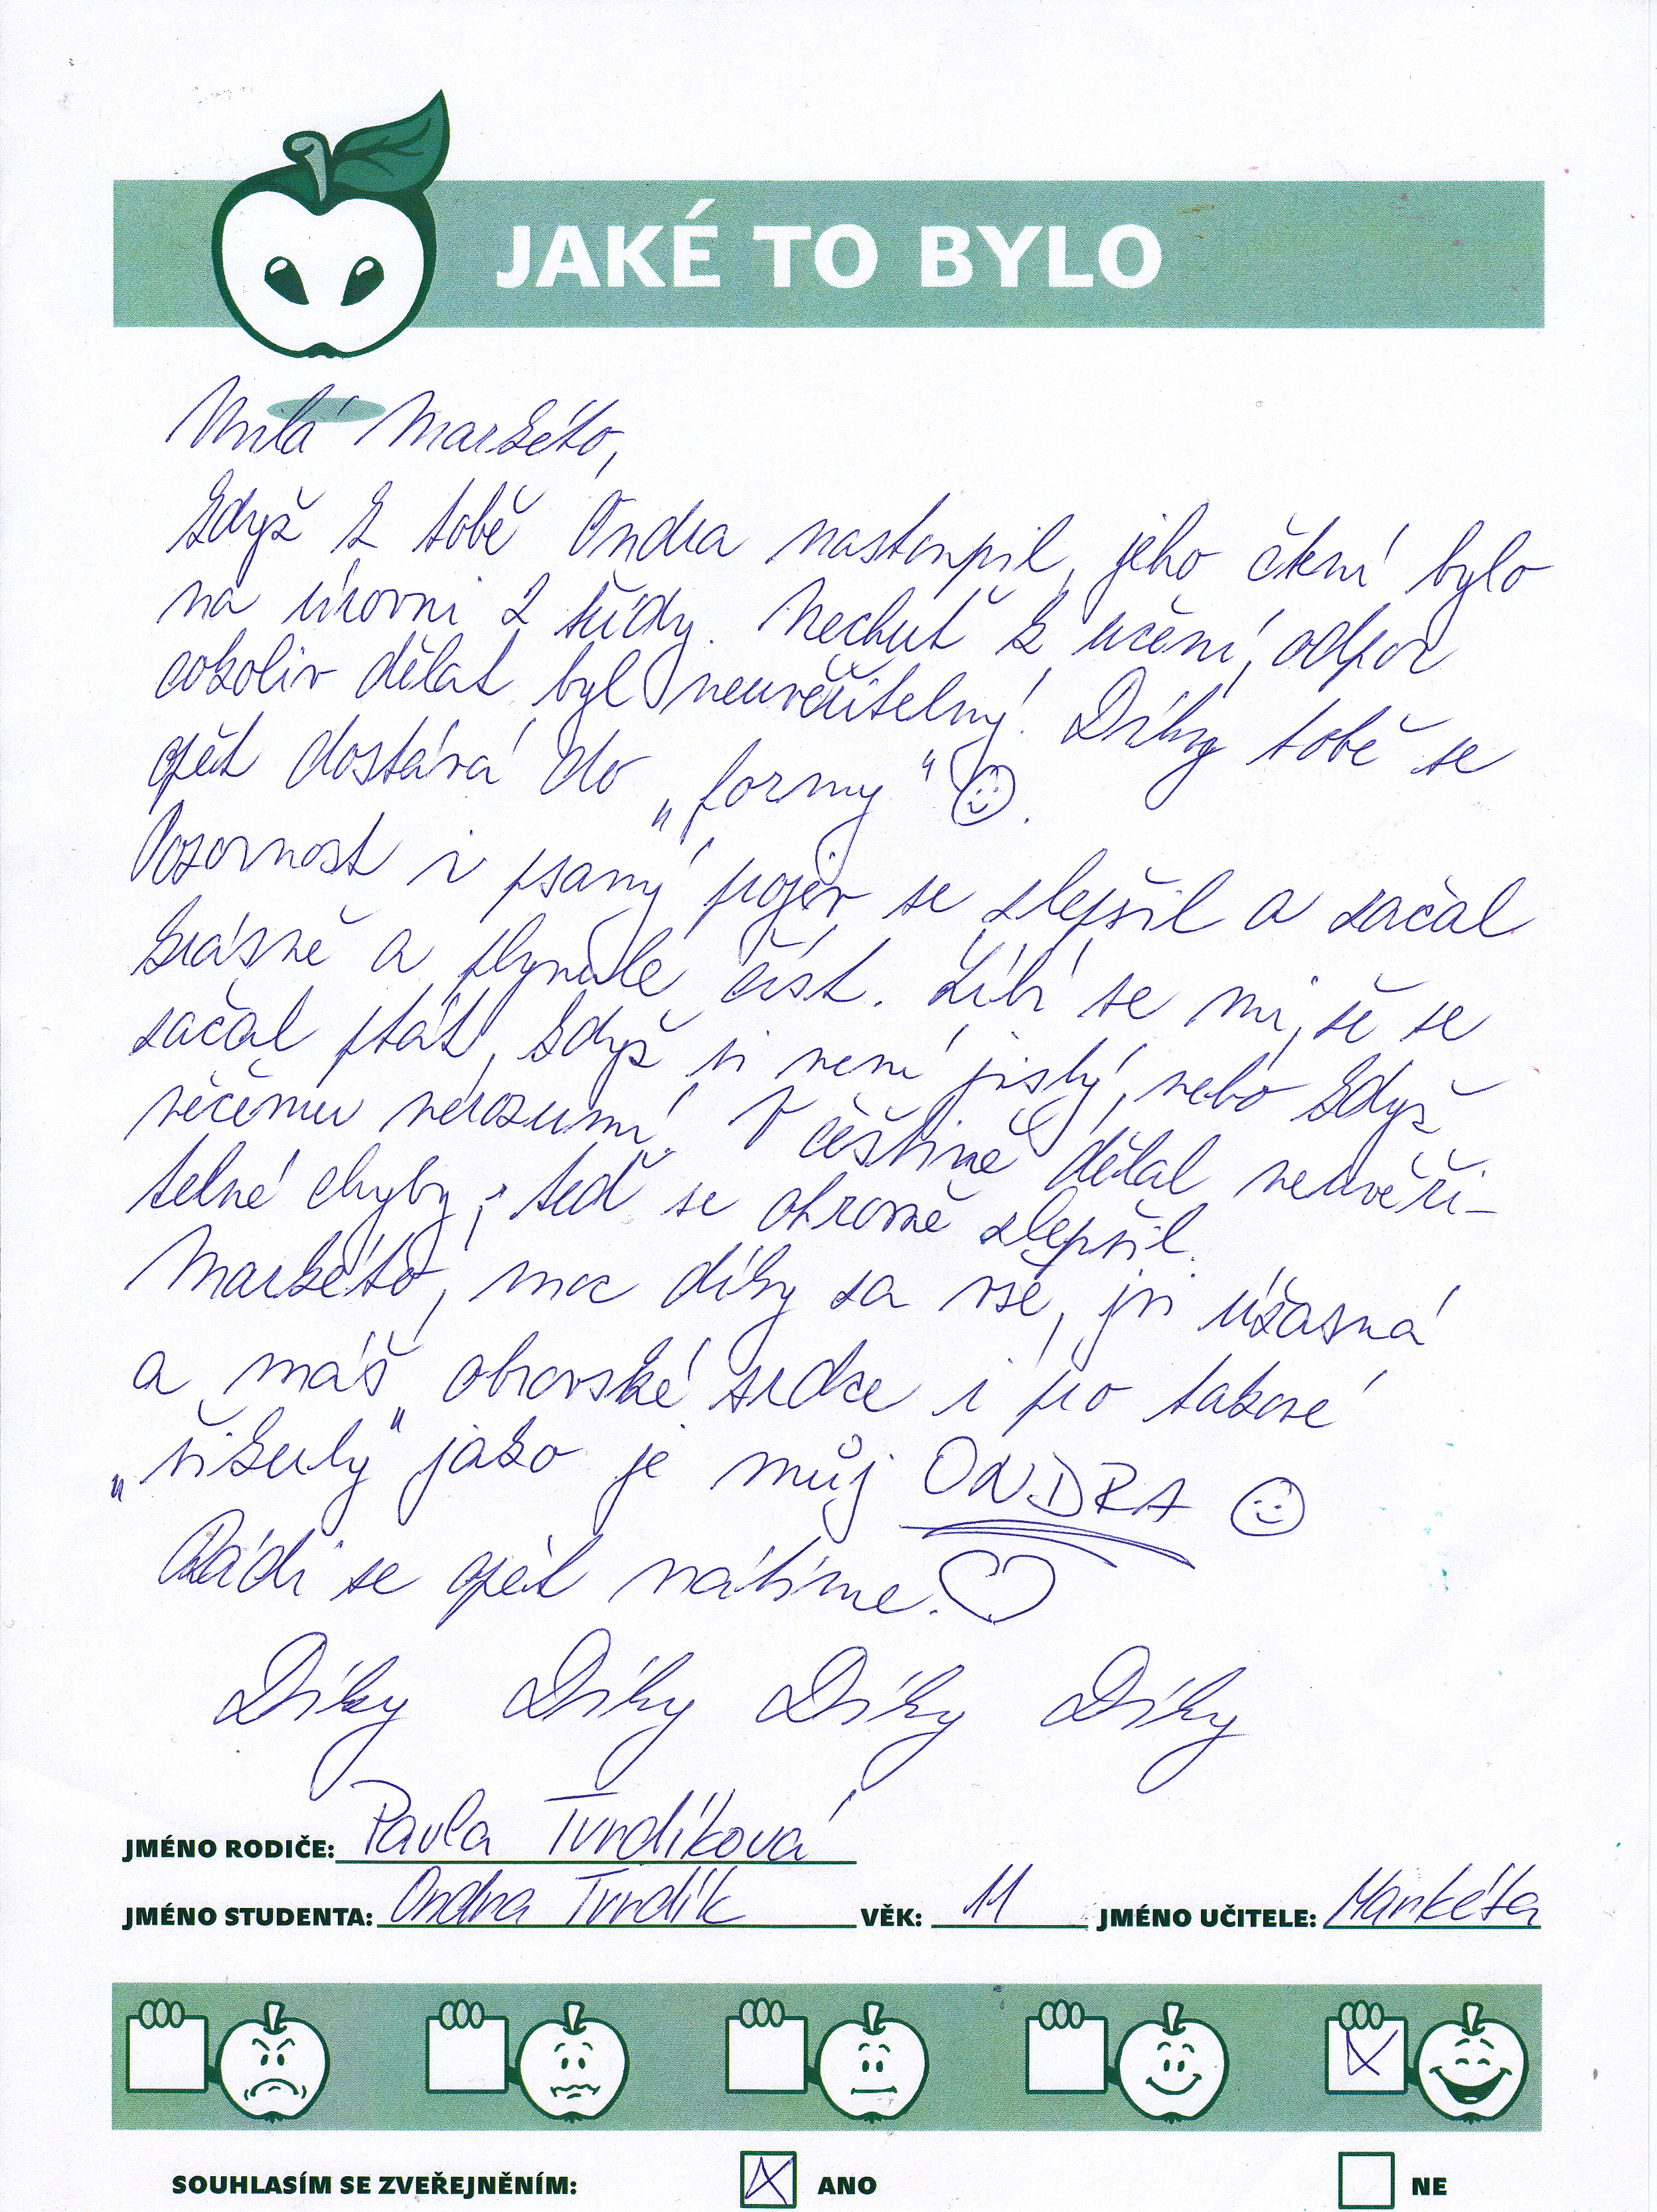 JAKÉ TO BYLO
Milá Markéto,
když k tobě Ondra nastoupil, jeho čtení bylo
na úrovni 2 třídy. Nechuť k učení, odpor
cokoliv dělat byl neuvěřitelný! Díky tobě se
opět dostává do „formy“ ☺.
Pozornost i psaný projev se zlepšil a začal
krásně a plynule číst. Líbí se mi, že se
začal ptát, když si není jistý, nebo když
něčemu nerozumí. V češtině dělal neuvěři-
telné chyby, teď se ohromně zlepšil.
Markéto, moc díky za vše, jsi úžasná
a máš obrovské srdce i pro takové
„šikuly“ jako je můj ONDRA ☺
Rádi se opět vrátíme. ♡
Díky Díky Díky Díky
JMÉNO RODIČE: Pavla Tvrdíková
JMÉNO STUDENTA: Ondra Tvrdík VĚK: 11 JMÉNO UČITELE: Markéta
SOUHLASÍM SE ZVEŘEJNĚNÍM: ANO NE